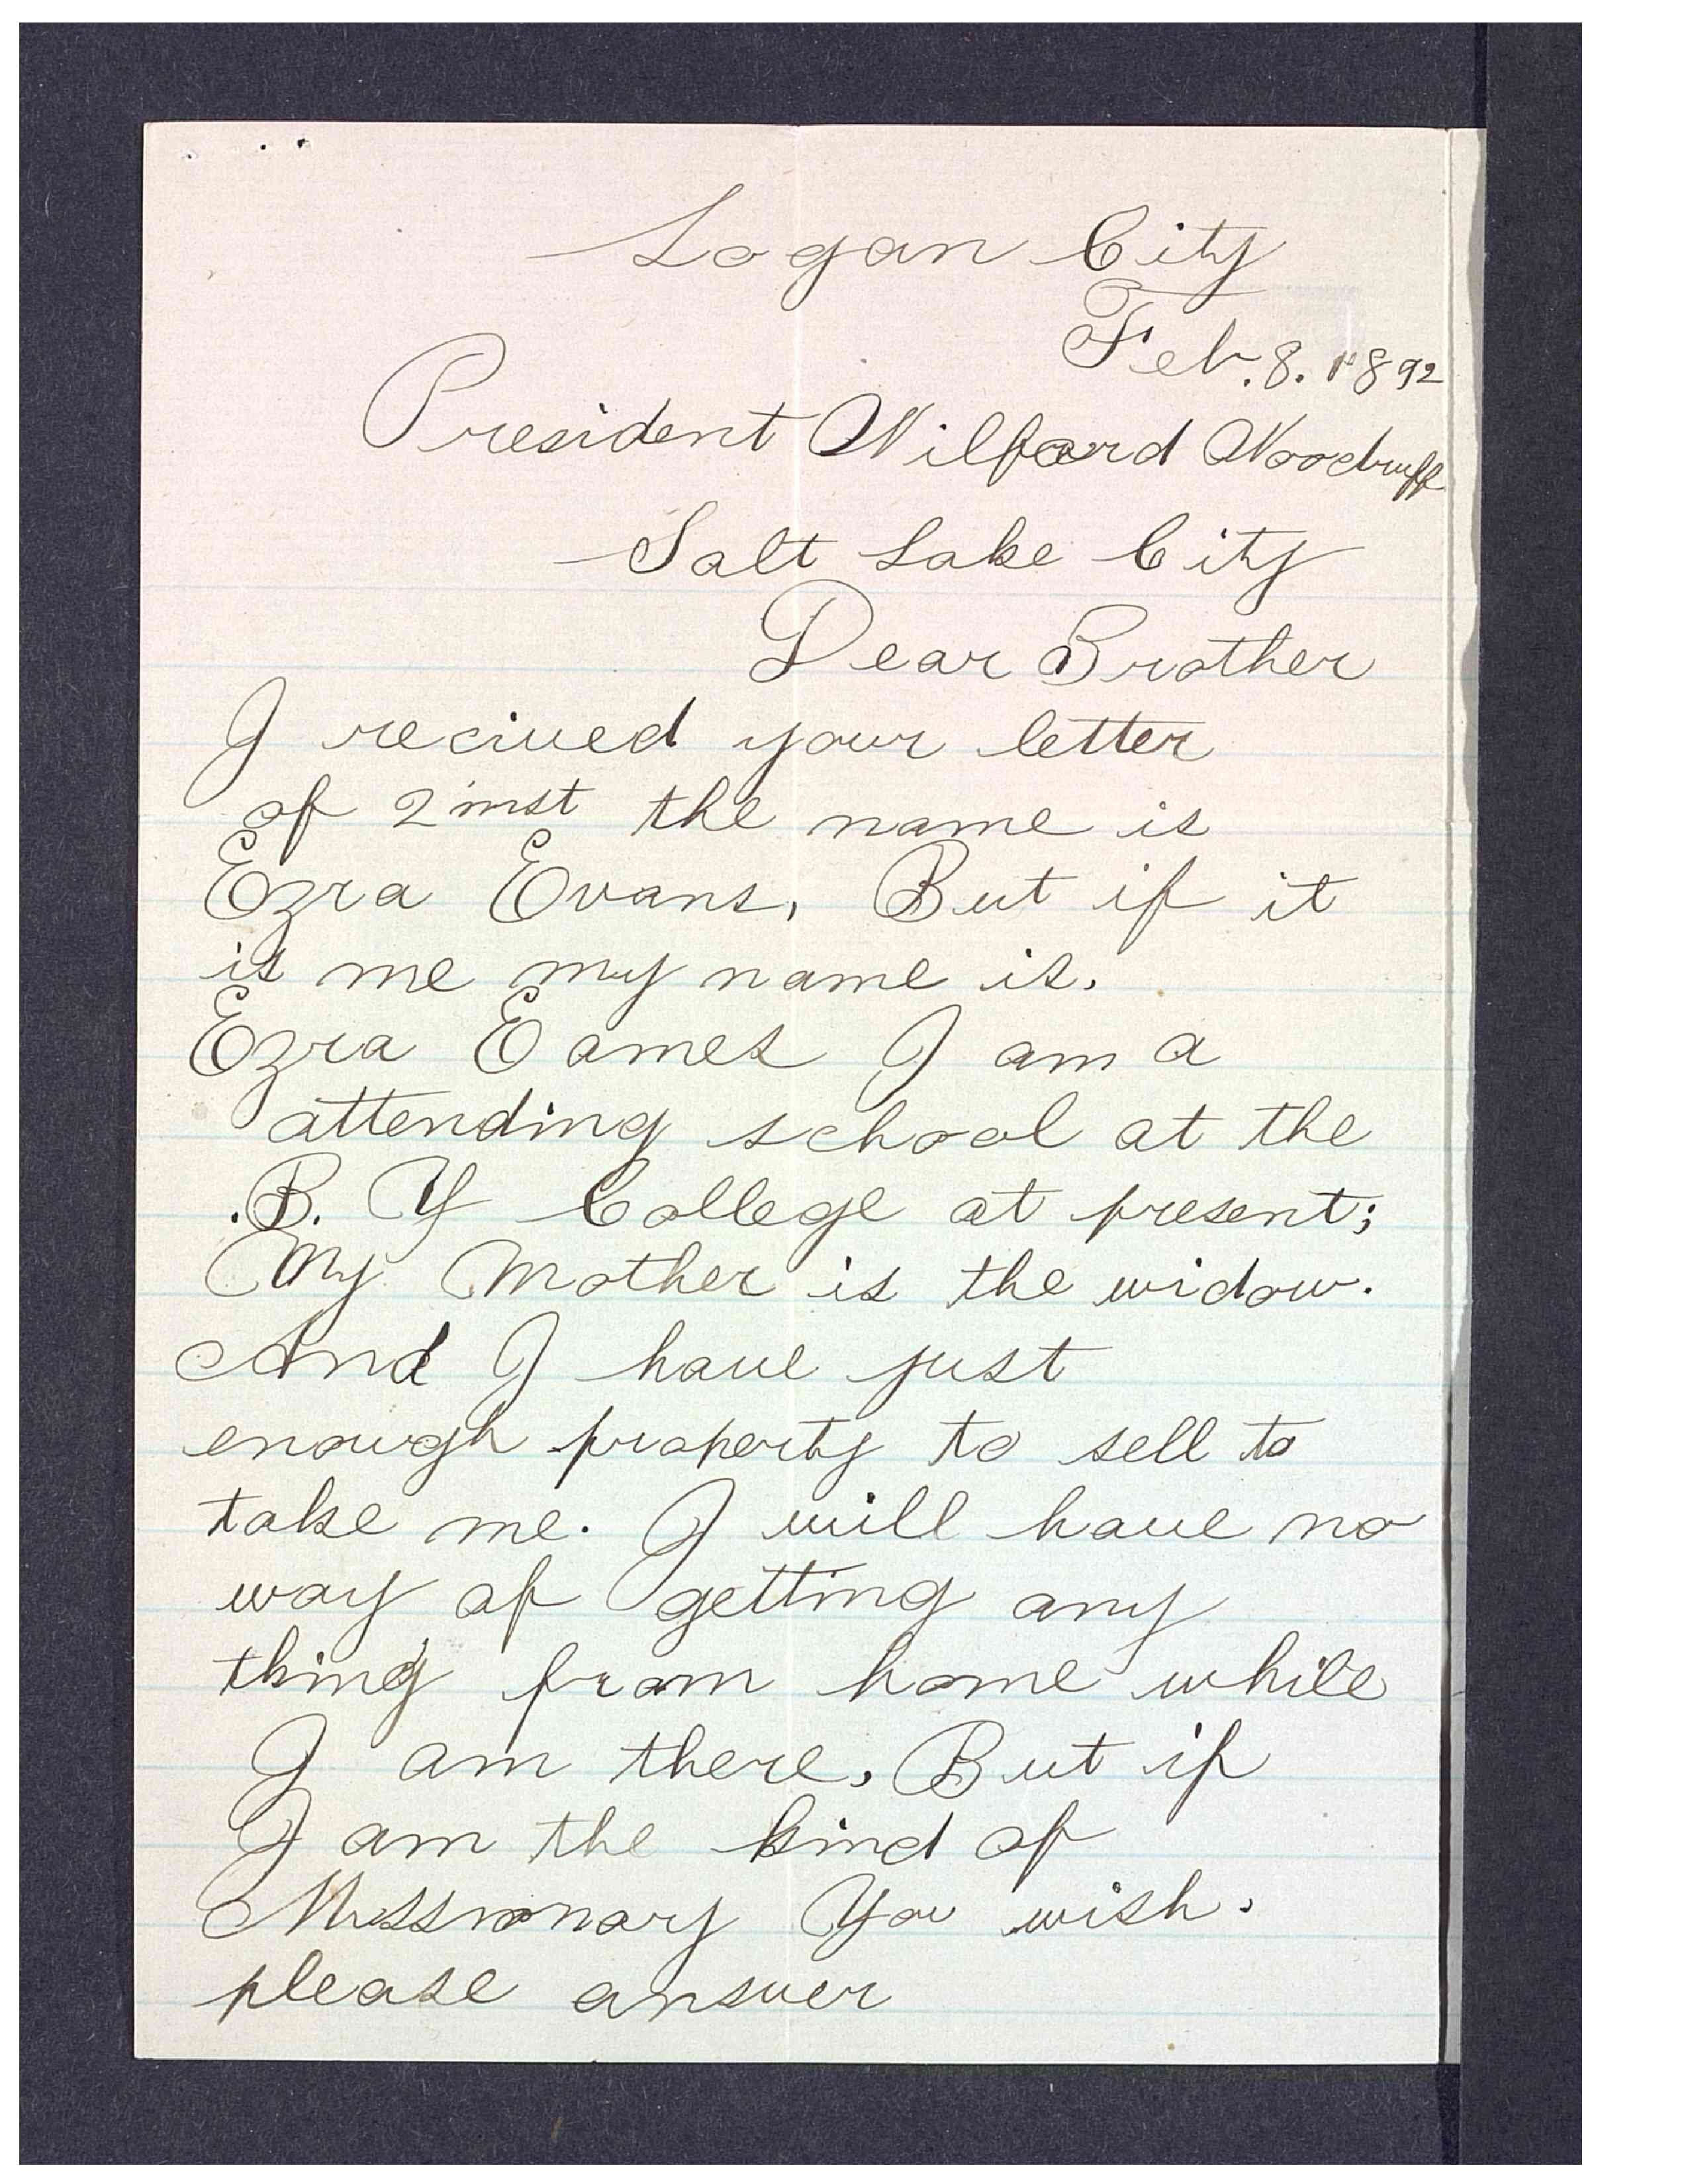 Logan City
Feb. 8. 1892
President Wilford Woodruff
Salt Lake City
Dear Brother
I recived your letter
of 2 inst the name is
Ezra Evans, But if it
is me my name is.
Ezra Eames I am a
attending school at the
.B. Y College at present;
My Mother is the widow.
And I have just
enough property to sell to
take me. I will have no
way of getting any
thing from home while
I am there, But if
I am the kind of
Missionary You wish.
please answer